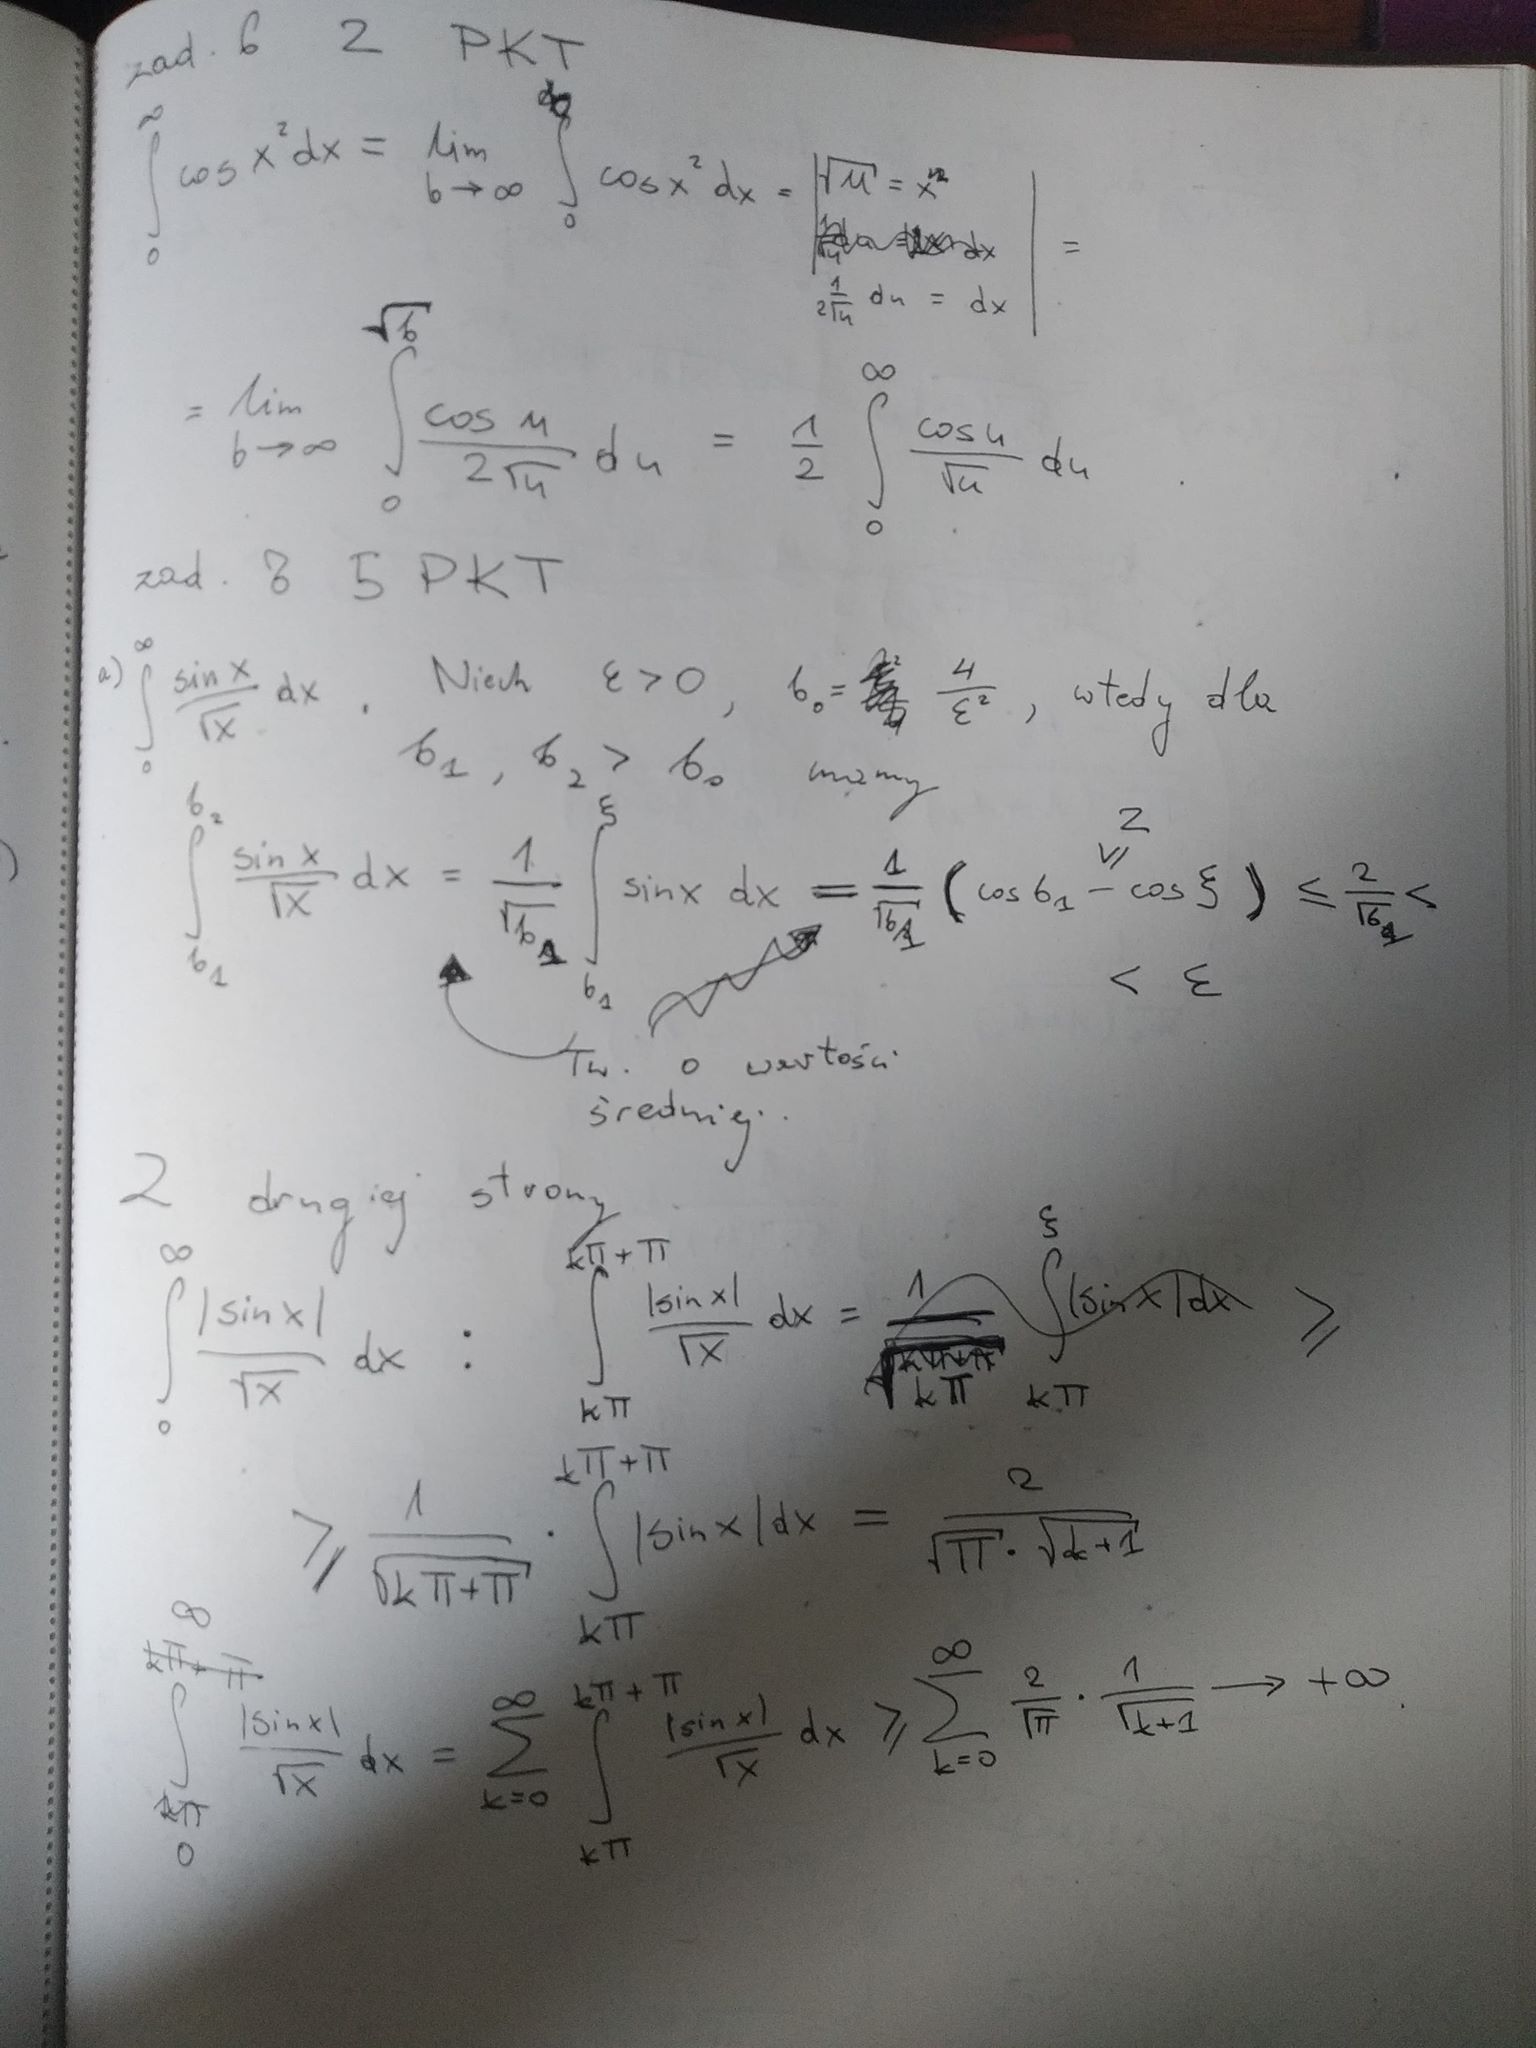 zad. 6 2 PKT
∫₀^∞ cos x² dx = lim_{b→∞} ∫₀ cos x² dx = | √u = x
1/(2√u) du = dx | =
= lim_{b→∞} ∫₀^{√b} cos u/(2√u) du = 1/2 ∫₀^∞ cos u/√u du
zad. 8 5 PKT
a) ∫₀^∞ sin x/√x dx . Niech ε > 0, b₀ = 4/ε², wtedy dla
b₁, b₂ > b₀ mamy
∫_{b₁}^{b₂} sin x/√x dx = 1/√b₁ ∫_{b₁}^{ξ} sin x dx = 1/√b₁ (cos b₁ - cos ξ) ≤ 2/√b₁ <
2
< ε
Tw. o wartości
średniej.
Z drugiej strony
∫₀^∞ |sin x|/√x dx : ∫_{kπ}^{kπ+π} |sin x|/√x dx = ≥
≥ 1/√(kπ+π) · ∫_{kπ}^{kπ+π} |sin x| dx = 2/(√π · √(k+1))
∫₀^∞ |sin x|/√x dx = ∑_{k=0}^∞ ∫_{kπ}^{kπ+π} |sin x|/√x dx ≥ ∑_{k=0}^∞ 2/√π · 1/√(k+1) → +∞.